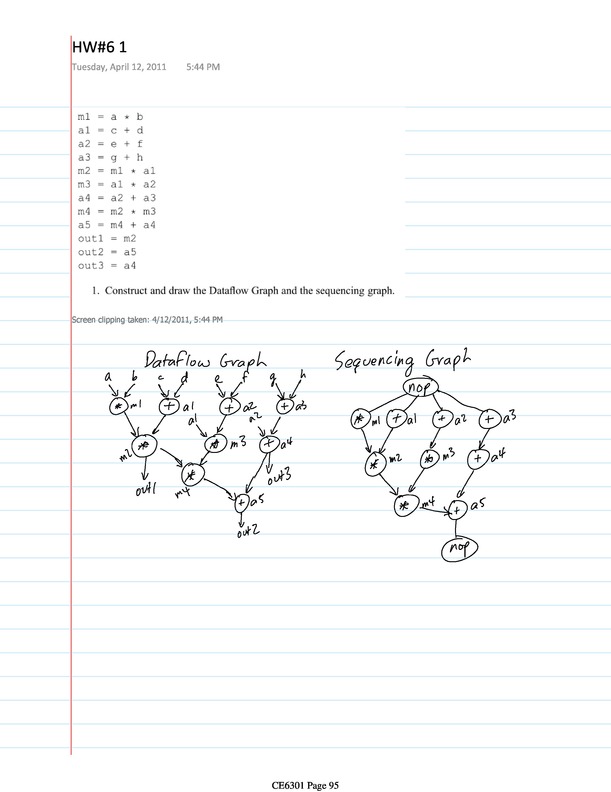 HW#6 1
Tuesday, April 12, 2011 5:44 PM
m1 = a * b
a1 = c + d
a2 = e + f
a3 = g + h
m2 = m1 * a1
m3 = a1 * a2
a4 = a2 + a3
m4 = m2 * m3
a5 = m4 + a4
out1 = m2
out2 = a5
out3 = a4
1. Construct and draw the Dataflow Graph and the sequencing graph.
Screen clipping taken: 4/12/2011, 5:44 PM
Dataflow Graph
a b c d e f g h
* m1 + a1 + a2 + a3
a1 a2
m2 * * m3 + a4
out1 * m4 out3
+ a5
out2
Sequencing Graph
nop
* m1 + a1 + a2 + a3
* m2 * m3 + a4
* m4 + a5
nop
CE6301 Page 95